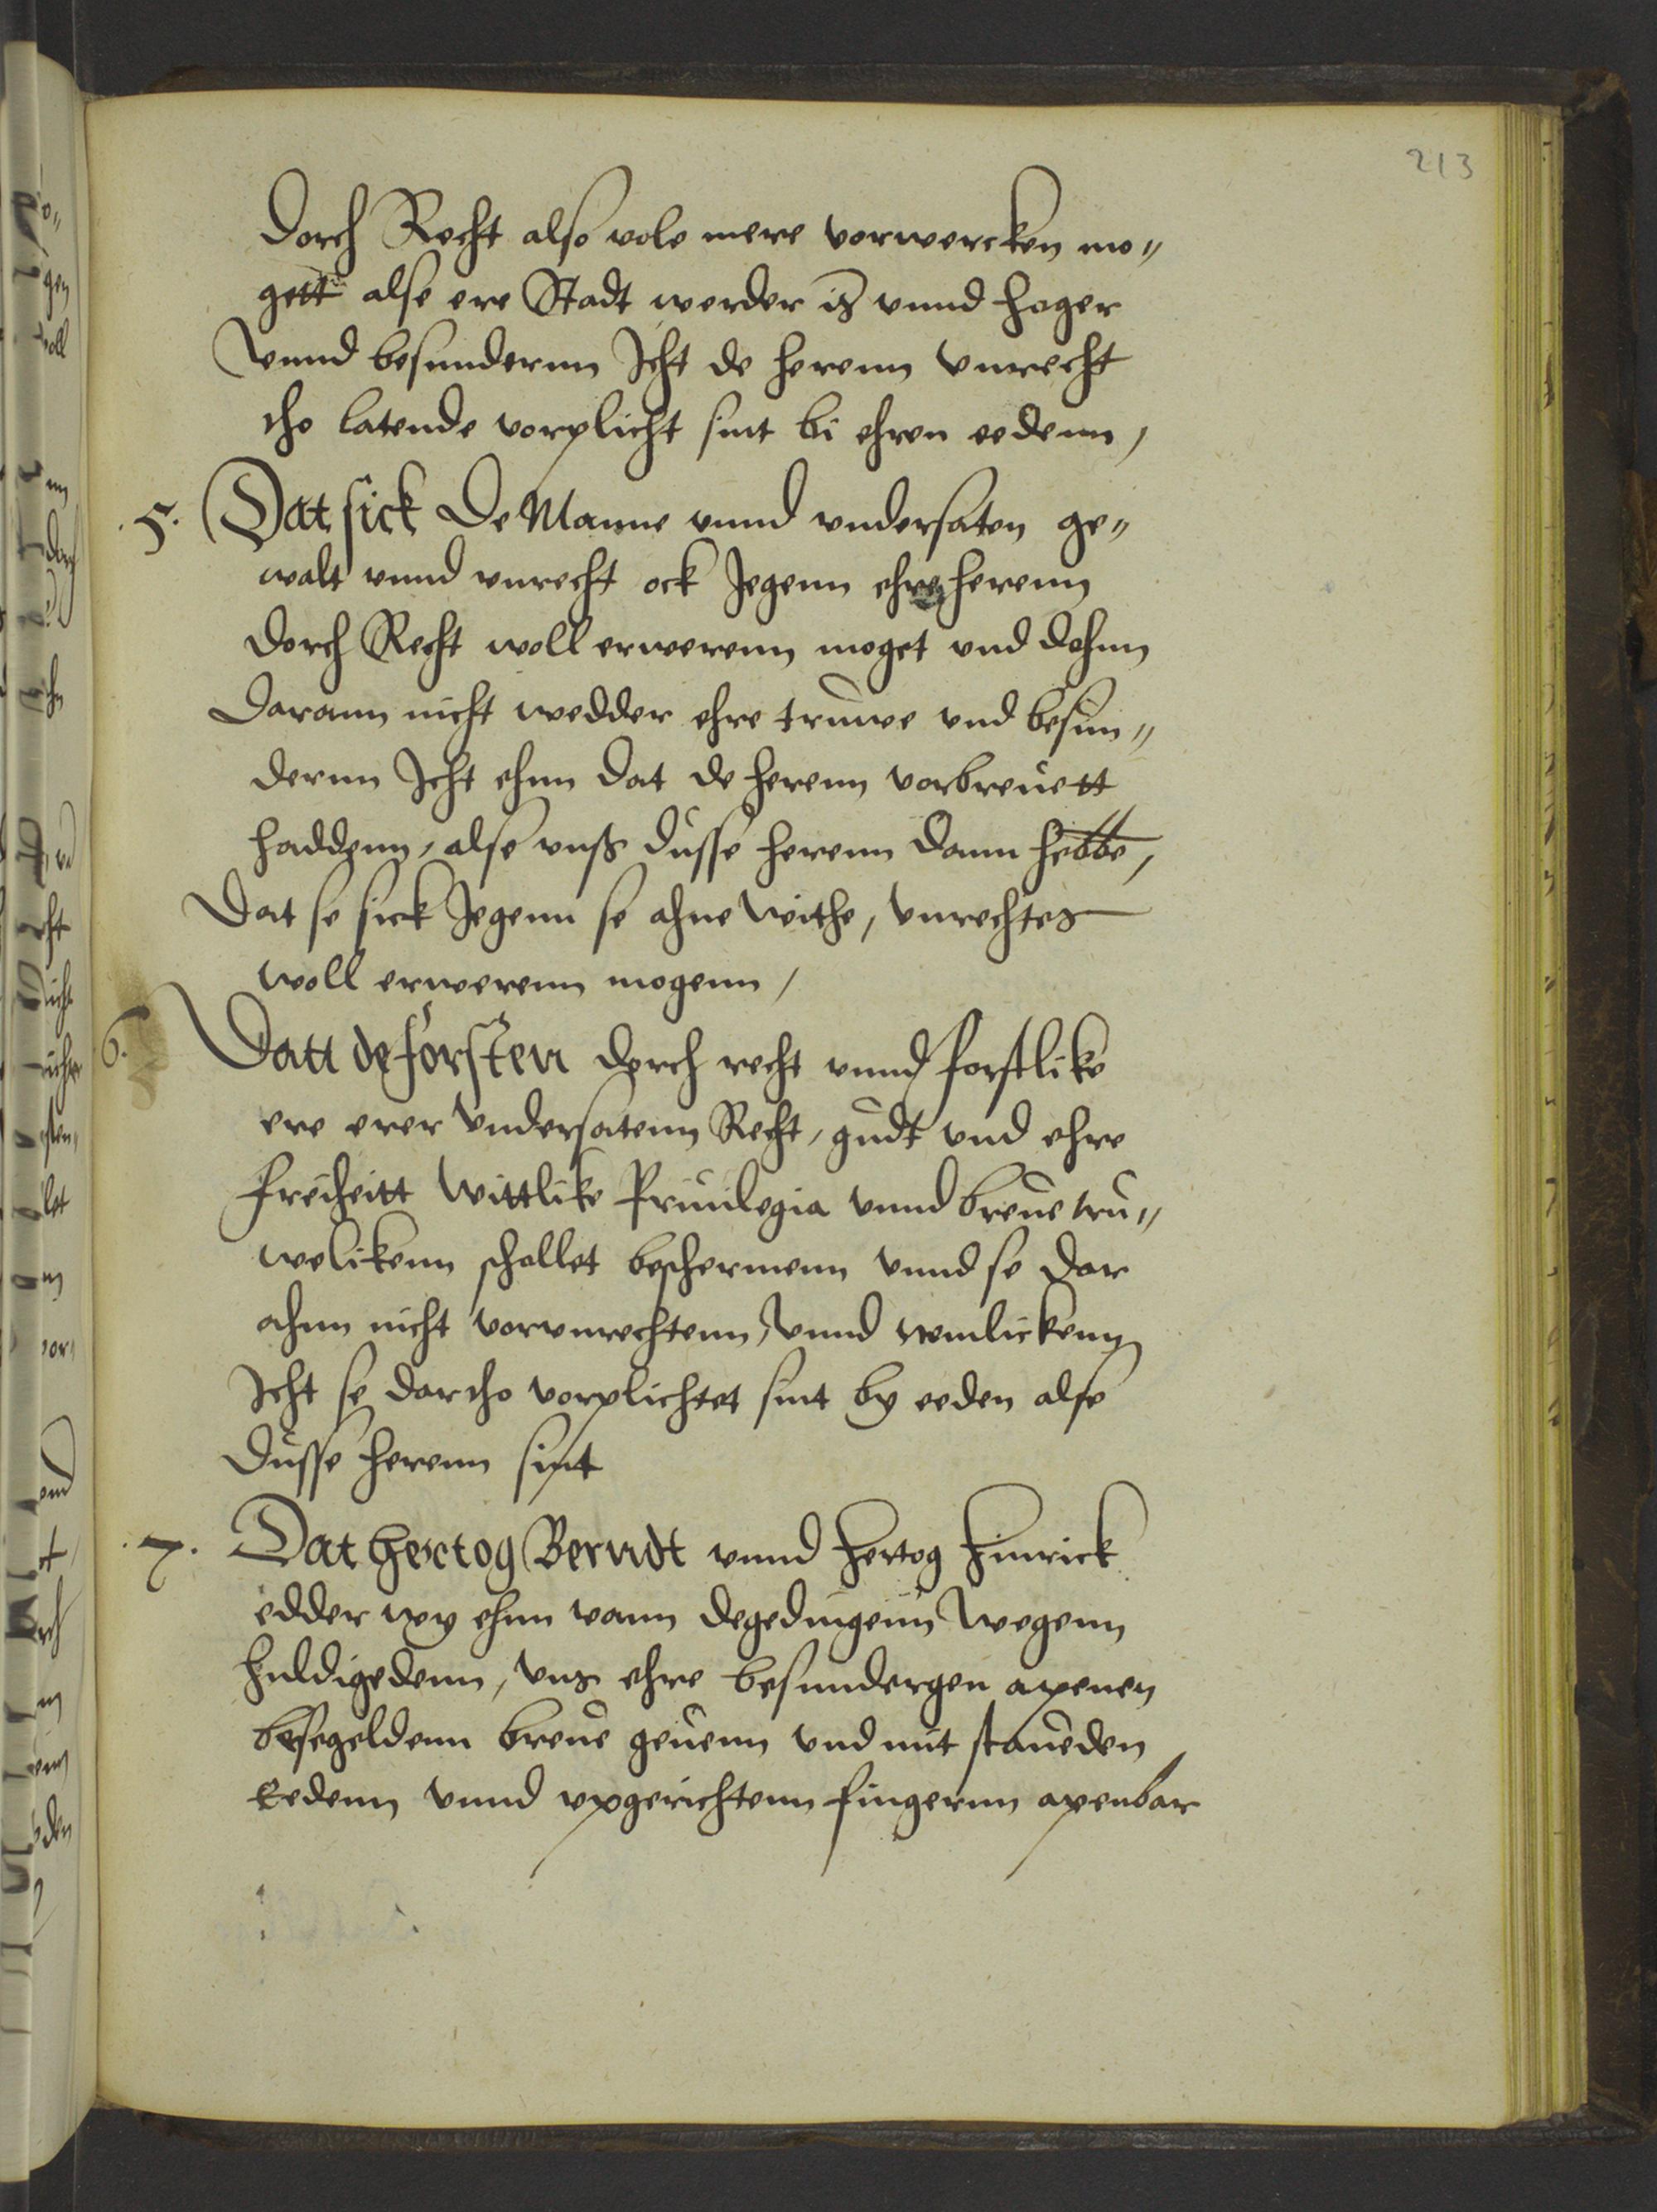 213
dorch Recht also vole mere vorwercken mo„
gett alse ere Stadt werder is vnnd hoger
Vnnd besundernn Icht de herenn vnrecht
tho latende vorplicht sint bi ehren eedenn,
5. Dat sick De Manne vnnd vndersaten ge„
walt vnnd vnrecht ock Jegenn ehre herenn
dorch Recht woll erwerenn moget vnd dohnn
darann nicht wedder ehre truwe vnd besun„
dernn Icht ehnn dat de herenn vorbreuett
haddenn, alse vnß dusse herenn dann hebbe,
Dat se sick Jegenn se ahne withe, vnrechtes
woll erwerenn mogenn,
6. Datt de forsten dorch recht vnnd forstlike
ere erer vndersatenn Recht, gudt vnd ehre
freiheitt wittlike Priuilegia vnnd breue tru„
welikenn schollet beschermenn vnnd se dar
ahnn nicht vorvnrechtenn, Vnnd
Icht se dartho vorplichtet sint by eeden alse
dusse herenn sint
7. Dat Hertog Berndt vnnd hertog Hinrick
edder wy ehnn vann degedingenn wegenn
huldigedenn, vns ehre besundergen apenen
besegeldenn breue geuenn vnd mit staueden
Eedenn vnnd vpgerichtenn fingernn apenbar